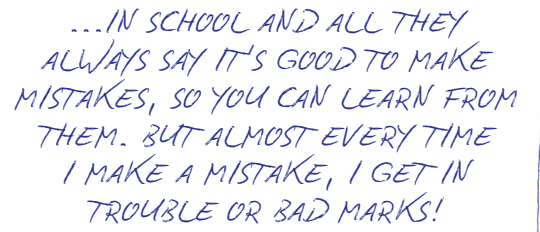 ...IN SCHOOL AND ALL THEY
ALWAYS SAY IT'S GOOD TO MAKE
MISTAKES, SO YOU CAN LEARN FROM
THEM. BUT ALMOST EVERY TIME
I MAKE A MISTAKE, I GET IN
TROUBLE OR BAD MARKS!